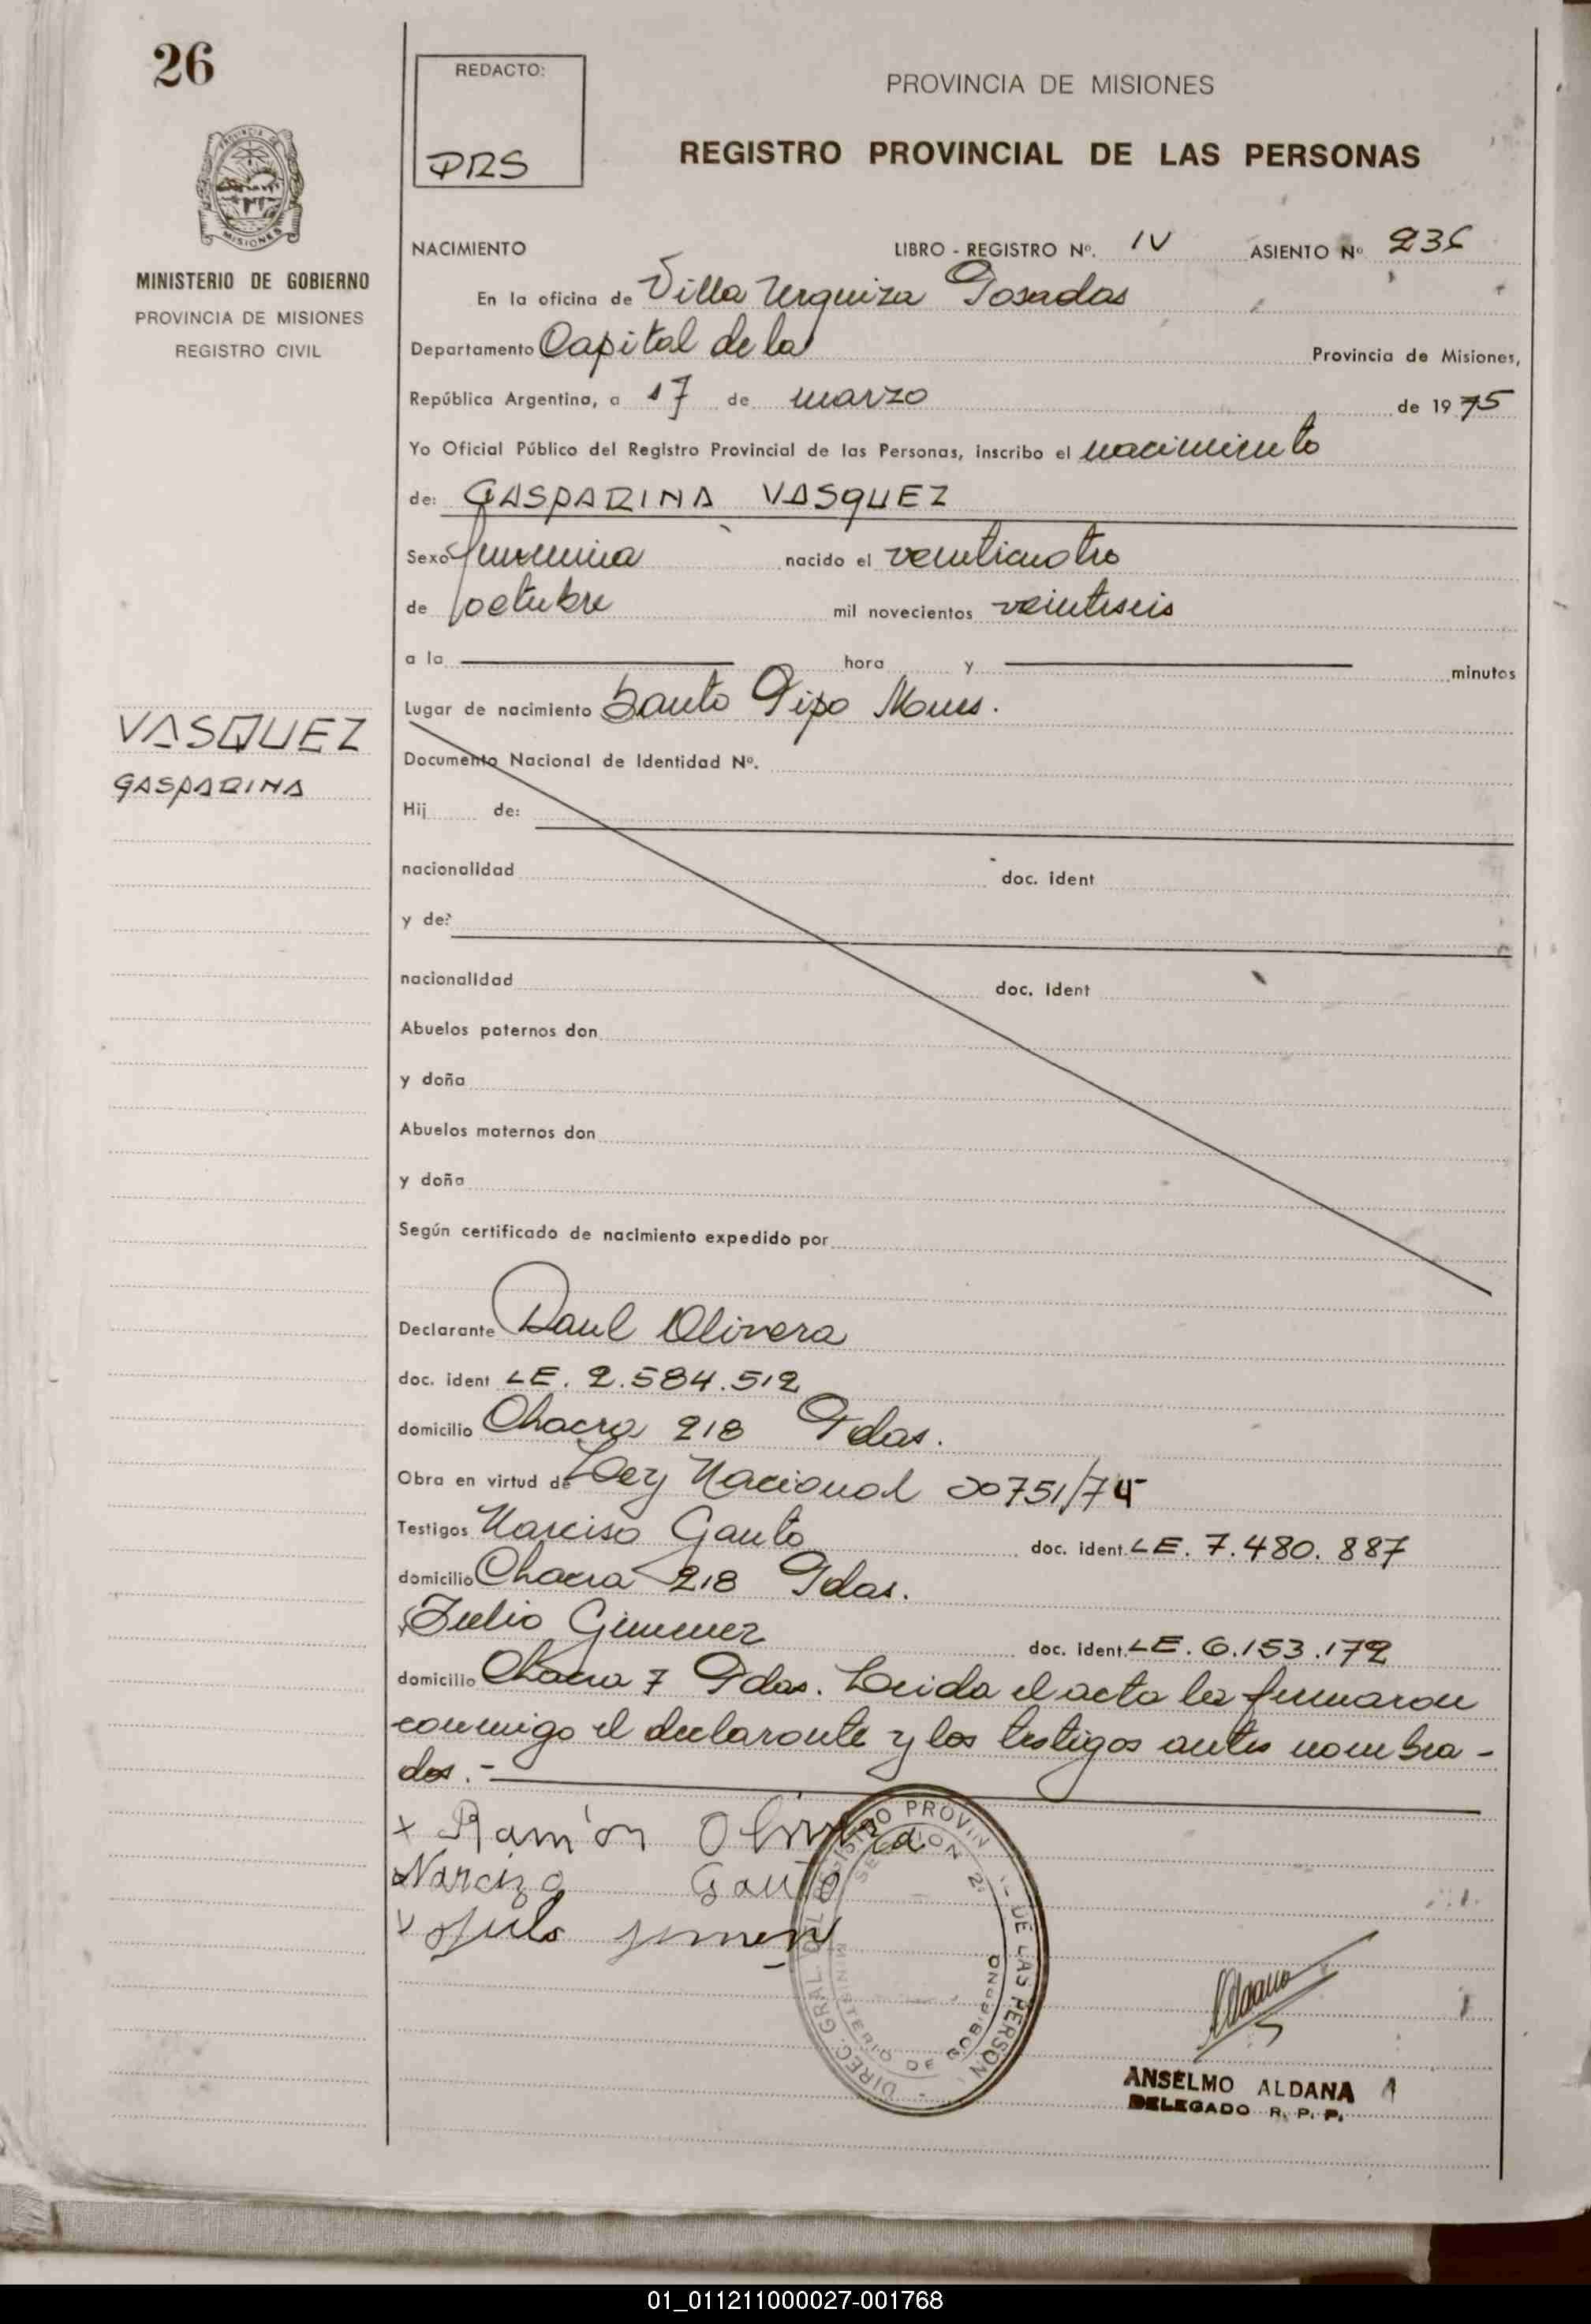 26
REDACTO:
PROVINCIA DE MISIONES
DRS
REGISTRO PROVINCIAL DE LAS PERSONAS
MISIONES
MINISTERIO DE GOBIERNO
PROVINCIA DE MISIONES
REGISTRO CIVIL
NACIMIENTO LIBRO - REGISTRO Nº. IV ASIENTO Nº 236
En la oficina de Villa Urquiza Posadas
Departamento Capital de la Provincia de Misiones,
República Argentina, a 17 de marzo de 1975
Yo Oficial Público del Registro Provincial de las Personas, inscribo el nacimiento
de: GASPARINA VASQUEZ
Sexo femenina nacido el veinticuatro
de octubre mil novecientos veintiseis
a la hora y minutos
Lugar de nacimiento Santo Pipo Mnes.
VASQUEZ
GASPARINA
Documento Nacional de Identidad Nº.
Hij de:
nacionalidad doc. ident
y de:
nacionalidad doc. ident
Abuelos paternos don
y doña
Abuelos maternos don
y doña
Según certificado de nacimiento expedido por
Declarante Raul Olivera
doc. ident LE. 2.584.512
domicilio Chacra 218 Pdas.
Obra en virtud de Ley Nacional 20751/74
Testigos Narciso Gauto doc. ident. LE. 7.480.887
domicilio Chacra 218 Pdas.
Julio Gimenez doc. ident. LE. 6.153.172
domicilio Chacra 7 Pdas. Leida el acta la firmaron
conmigo el declarante y los testigos antes nombra-
dos.-
x Ramón Olivera
Narcizo Gauto
DIREC. GRAL. DEL REGISTRO PROVIN DE LAS PERSON
SECCION 2
MINISTERIO DE GOBIERNO
ANSELMO ALDANA
DELEGADO R. P. P.
01_011211000027-001768